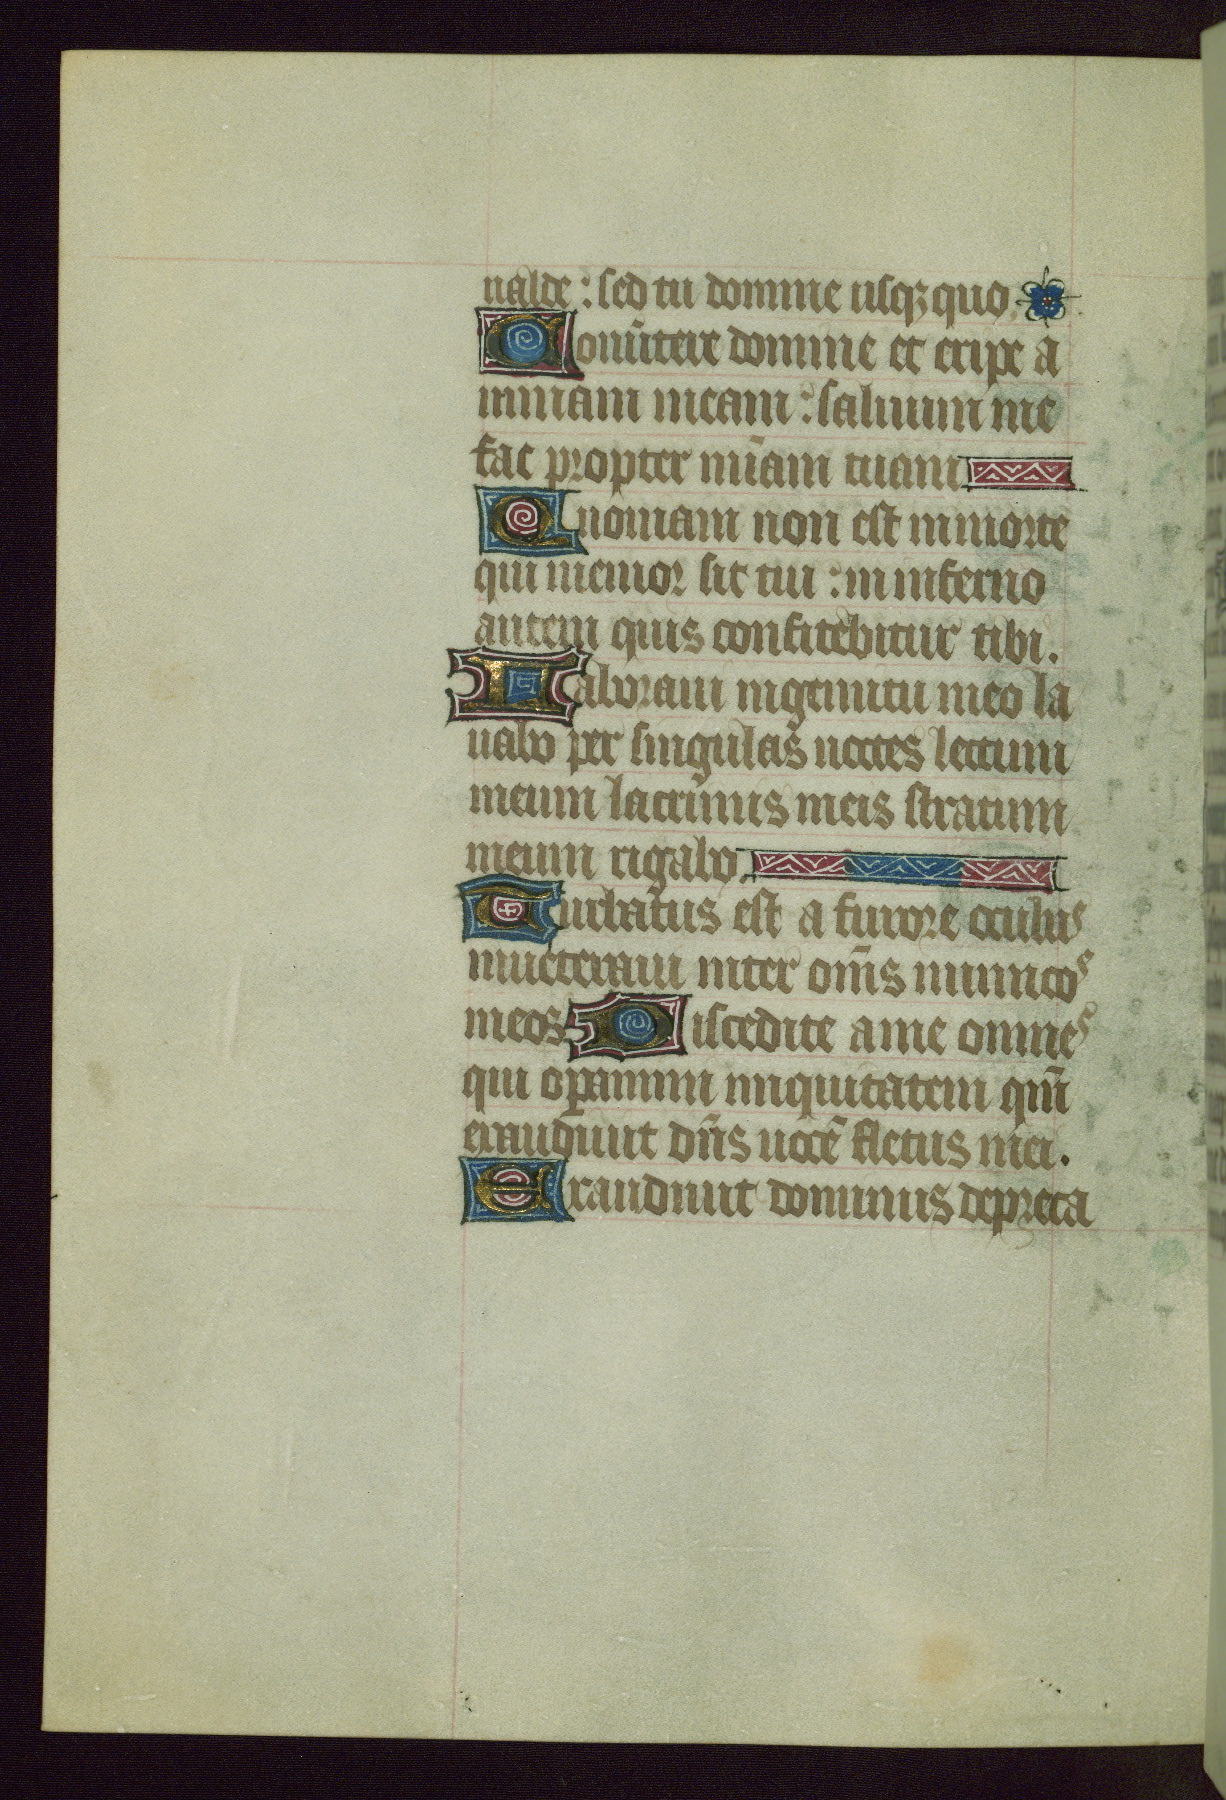 ualde : sed tu domine usqꝫ quo.
Conūtere domine et eripe a
nimam meam : saluum me
fac propter mīam tuam
Quoniam non est in morte
qui memor sit tui : in inferno
autem quis confitebitur tibi.
Laboraui in gemitu meo la
uabo per singulas noctes lectum
meum lacrimis meis stratum
meum rigabo.
Turbatus est a furore oculus
inueteraui inter om̄s inimicos
meos Discedite a me omnes
qui oꝑamini iniquitatem qm̄
exaudiuit dn̄s uocē fletus mei.
Exaudiuit dominus depreca